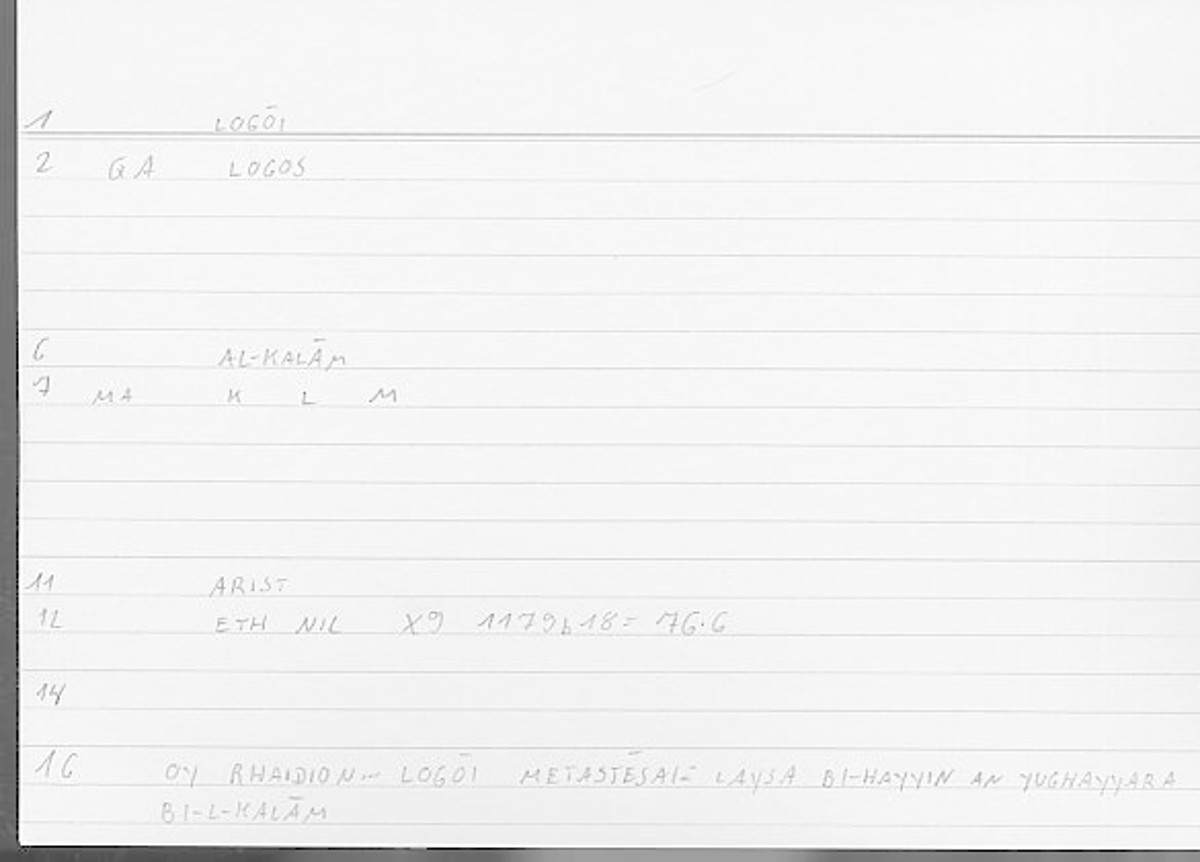 1 LOGŌI
2 GA LOGOS
6 AL-KALĀM
7 MA K L M
11 ARIST
12 ETH NIC X9 1179b18= 76.6
14
16 OY RHAIDION... LOGŌI METASTĒSAI= LAYSA BI-HAYYIN AN YUGHAYYARA
BI-L-KALĀM